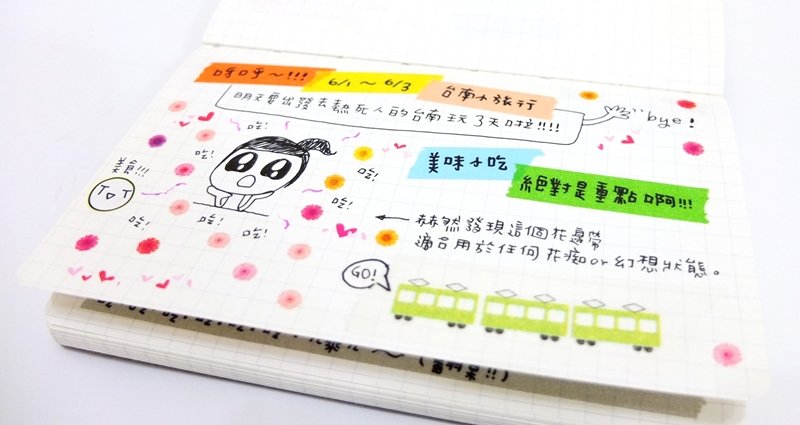 呀呼～!!!
6/1～6/3
台南小旅行
明天要出發去熱死人的台南玩3天啦!!!!
bye!
美味小吃
絕對是重點啊!!!
美食!!!
TOT
吃!
吃!
吃!
吃!
吃!
吃!
吃!
吃!
← 赫然發現這個花邊帶
適合用於任何花痴or幻想狀態。
GO!